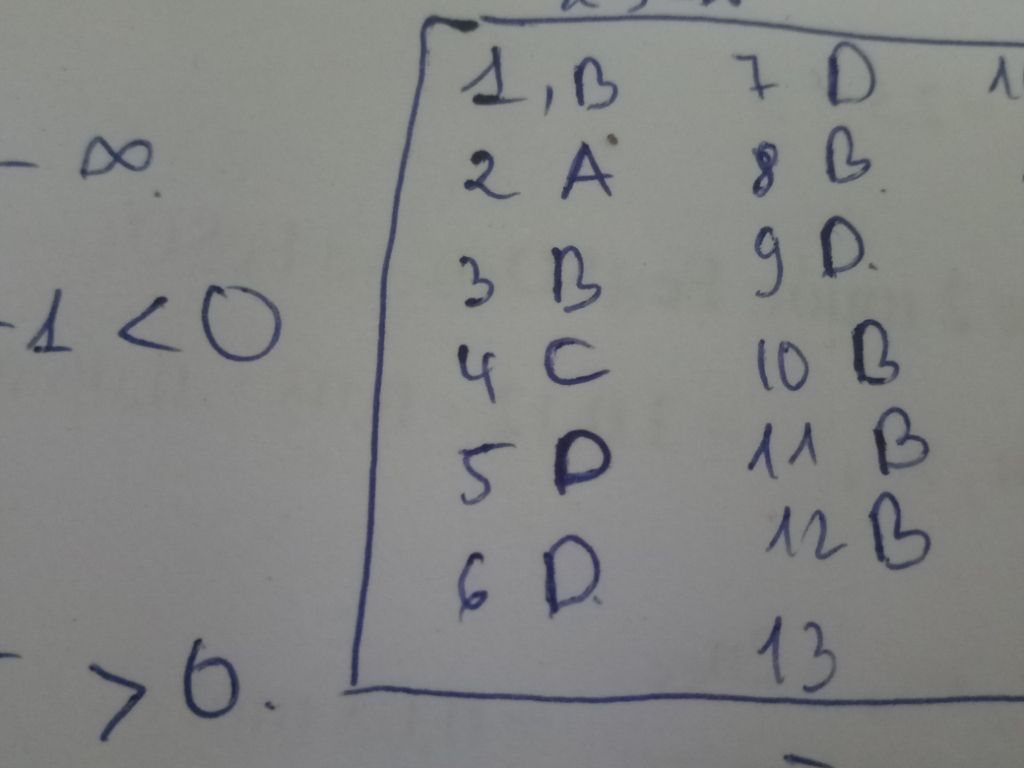 - ∞.
-1 < 0
> 0.
1, B 7 D
2 A 8 B.
3 B 9 D.
4 C 10 B
5 D 11 B
6 D. 12 B
13